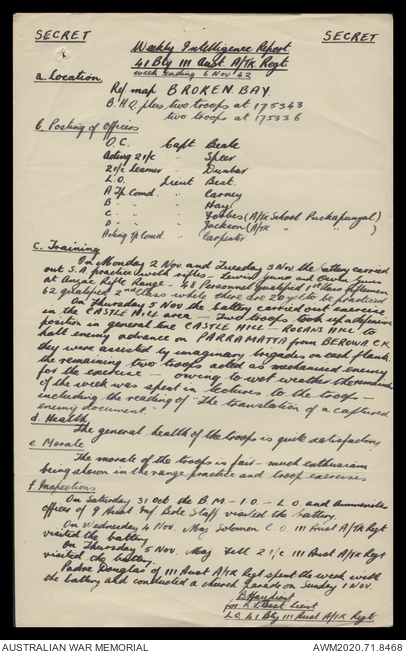 SECRET SECRET
Weekly Intelligence Report
41 Bty 111 Aust A/Tk Regt
week ending 6 Nov 42
a. Location
Ref map BROKEN BAY.
B.H.Q. plus two troops at 175343
two troops at 175336
b. Posting of Officers
O.C. Capt Beale
Acting 2i/c " Speer
2i/c Learner " Dunbar
L.O. Lieut Best.
A Tp Comd. " Carney
B " " Hay
C " " Forbes (A/Tk School Puckapunyal)
D " " Jackson (A/Tk " " )
Acting Tp Comd. " Carpenter
c. Training
On Monday 2 Nov and Tuesday 3 Nov the battery carried
out S.A. practice with rifles - Lewis guns and Owen Guns
at Anzac Rifle Range. 48 Personnel qualified 1st Class Riflemen
62 qualified 2nd Class while there are 20 yet to be practiced
On Thursday 5 Nov the battery carried out exercise
in the CASTLE HILL area - Two troops took up defensive
position in general line CASTLE HILL - ROGANS HILL to
halt enemy advance on PARRAMATTA from BEROWA CK.
they were assisted by imaginary brigades on each flank.
the remaining two troops acted as mechanised enemy
for the exercise - owing to wet weather the remainder
of the week was spent in lectures to the troops -
including the reading of "The translation of a captured
enemy document."
d. Health
The general health of the troops is quite satisfactory
e. Morale
The morale of the troops is fair - much enthusiasm
being shown in the range practice and troop exercises
f. Inspections
On Saturday 31 Oct the B.M. - I.O. - L.O. and
officer of 9 Aust Inf Bde Staff visited the battery.
On Wednesday 4 Nov. Maj Solomon C.O. 111 Aust A/Tk Regt
visited the battery
On Thursday 5 Nov. Maj Fell 2i/c 111 Aust A/Tk Regt
visited the battery.
Padre Douglas of 111 Aust A/Tk Regt spent the week with
the battery and conducted a church parade on Sunday 1 Nov.
for Best Lieut
L.O. 41 Bty 111 Aust A/Tk Regt
AUSTRALIAN WAR MEMORIAL AWM2020.71.8468